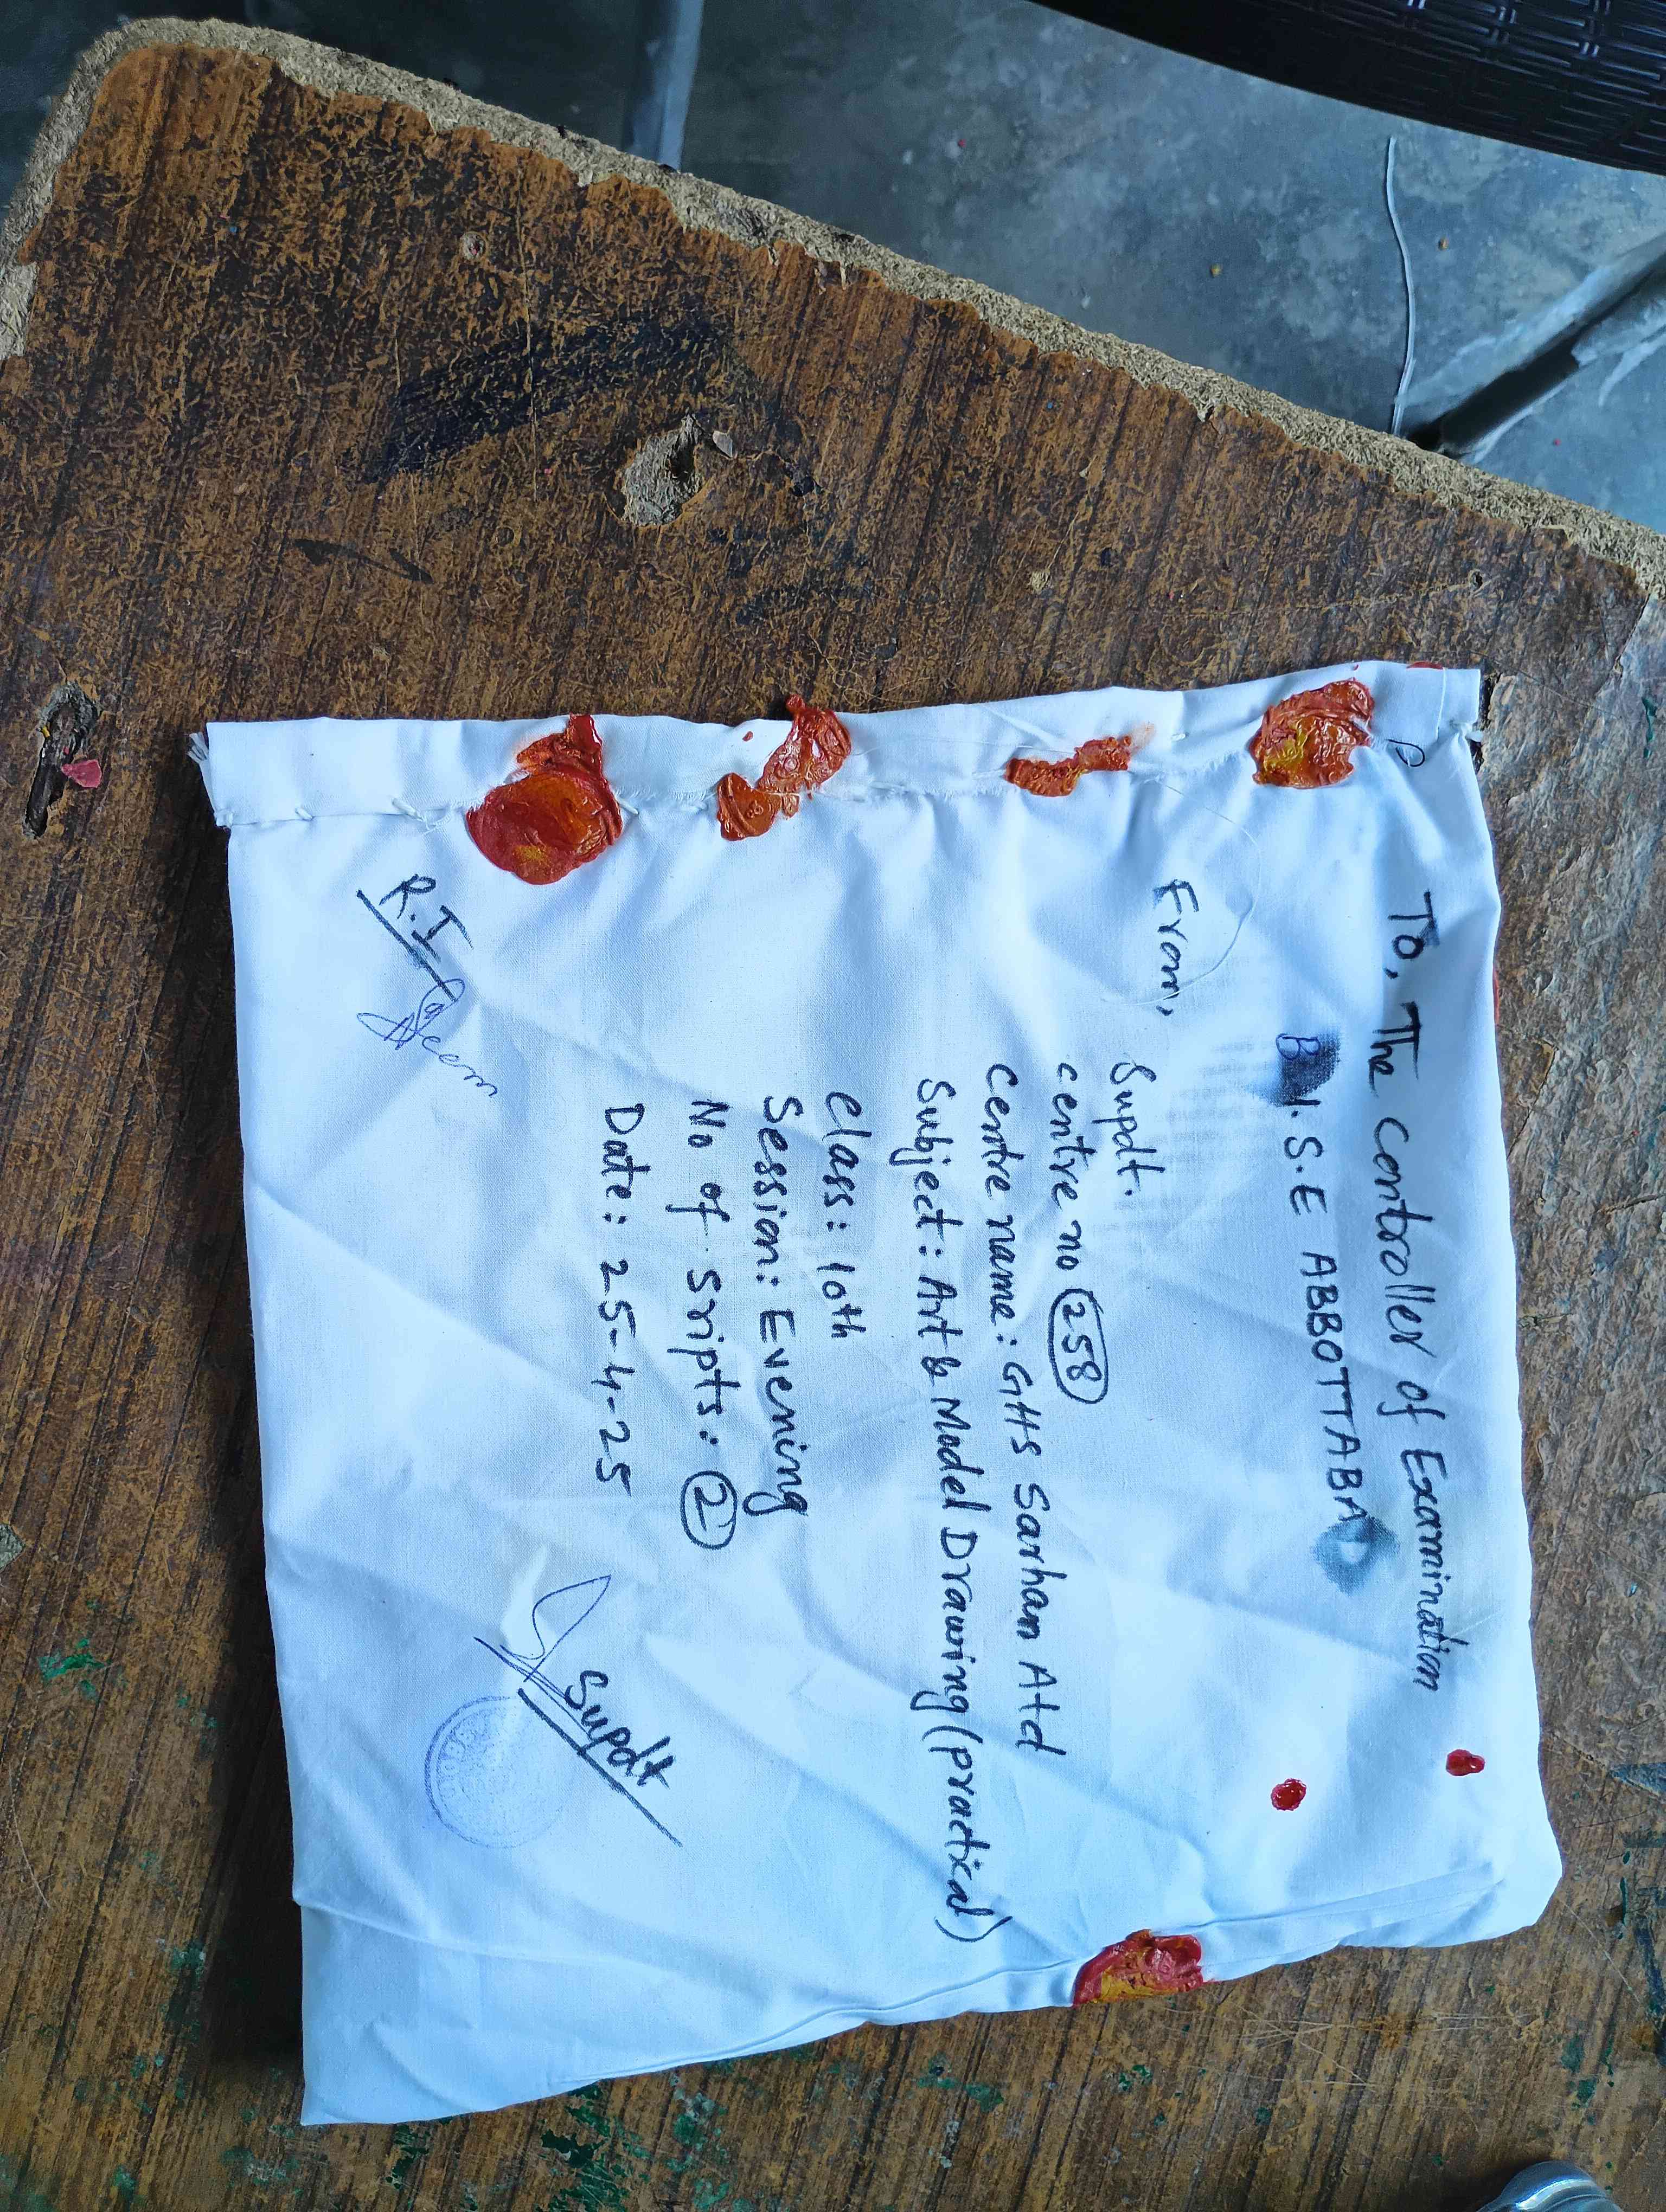 To, The controller of Examination
B.I.S.E ABBOTTABAD
From,
Supdt.
centre no 258
Centre name: GHS Sarham Atd
Subject: Art & Model Drawing (practical)
Class: 10th
Session: Evening
No of Sripts: 2
Date: 25-4-25
R.I
Supdt